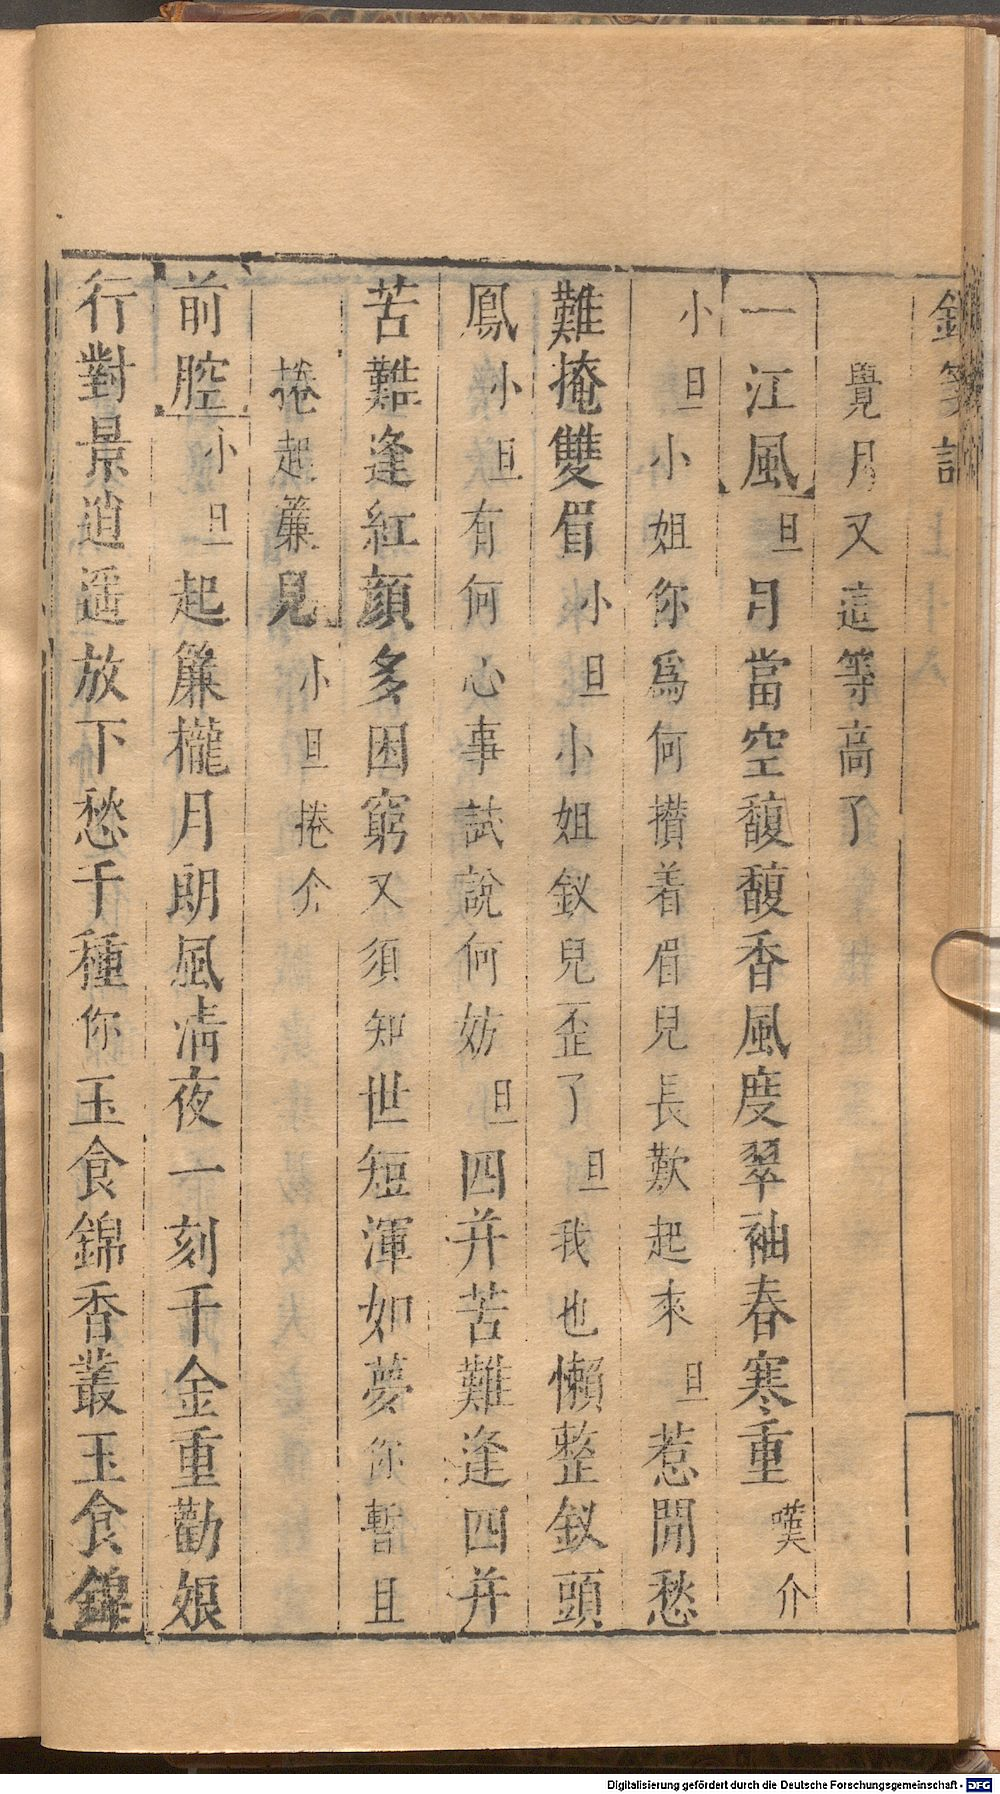 覺月又這等高了
一江風旦月當空馥馥香風度翠袖春寒重嘆介
小旦小姐你爲何攢着眉兒長歎起來旦惹閒愁
難掩雙眉小旦小姐釵兒歪了旦我也懶整釵頭
鳳小旦有何心事試說何妨旦四并苦難逢四并
苦難逢紅顏多困窮又須知世短渾如夢你暫且
捲起簾兒小旦捲介
前腔小旦起簾櫳月朗風清夜一刻千金重勸娘
行對景逍遥放下愁千種你玉食錦香叢玉食錦
Digitalisierung gefördert durch die Deutsche Forschungsgemeinschaft - DFG